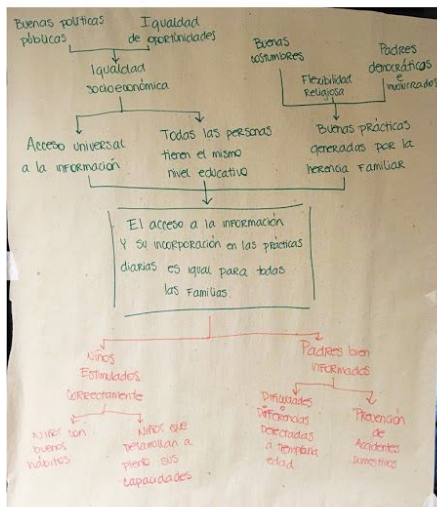 Buenas políticas
públicas
Igualdad
de oportunidades
Buenas
costumbres
Flexibilidad
Religiosa
Padres
democráticos
e
involucrados
Igualdad
socioeconómica
Acceso universal
a la información
Todas las personas
tienen el mismo
nivel educativo
Buenas prácticas
generadas por la
herencia Familiar
El acceso a la información
Y su incorporación en las prácticas
diarias es igual para todas
las Familias.
Niños
Estimulados
correctamente
Padres bien
informados
Niños con
buenos
hábitos
Niños que
Desarrollan a
pleno sus
capacidades
Dificultades
o
Diferencias
Detectadas
a Temprana
edad
Prevención
de
Accidentes
Domésticos